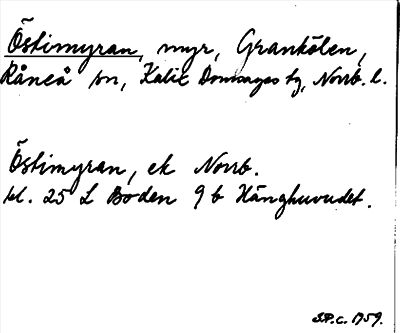 Östimyran, myr, Grankölen,
Råneå sn, Kalix Domsagas tg, Norrb. l.
Östimyran, ek Norrb.
bl. 25 L Boden 9 b Hänghuvudet.
S.P.C. 1959.